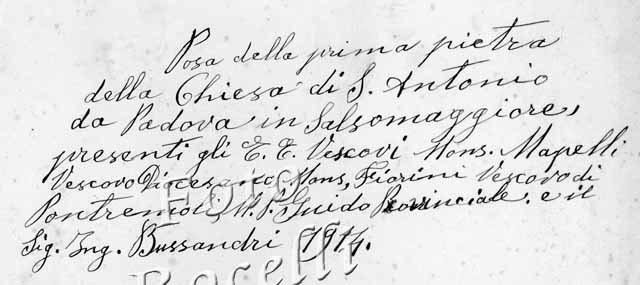 Posa della prima pietra
della Chiesa di S. Antonio
da Padova in Salsomaggiore,
presenti gli E. E. Vescovi Mons. Mapelli
Vescovo Diocesano, Mons. Fiorini Vescovo di
Pontremoli, M. P. Guido Provinciale. e il
Sig. Ing. Bussandri 1914.
Foto
Rocelli